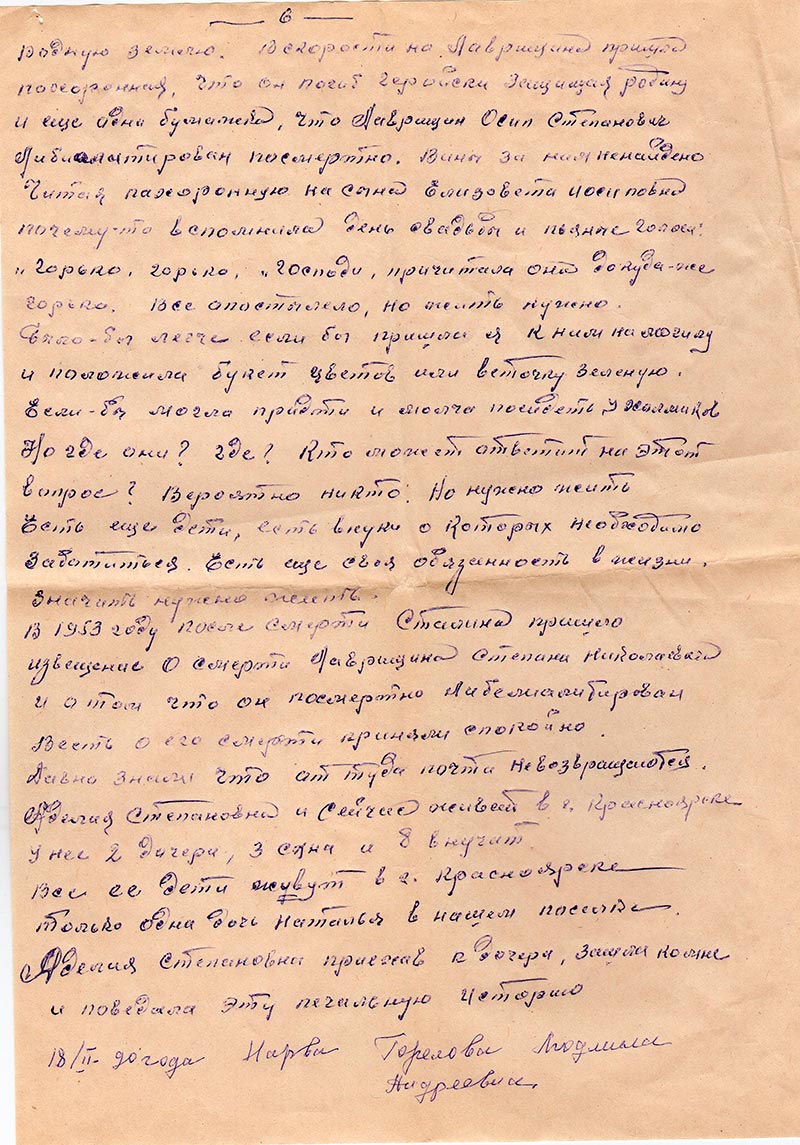 — 6 —
родную землю. Вскорости на Лаврищина пришла
похоронная, что он погиб геройски защищая родину
и еще одна бумажка, что Лаврищин Осип Степанович
посмертно. Вины за ним ненайдено
Читая похоронную на сына Елизовета иосиповна
почему-то вспомнила день свадьбы и пьяные голоса:
„Горько, горько, „Господи, причитала она докуда-же
горько. Все опостылело, но жить нужно.
Было-бы легче если бы пришла я к ним на могилу
и положила букет цветов или веточку зеленую.
Если-бы могла придти и молча посидеть у холмиков
Но где они? где? Кто может ответит на этот
вопрос? Вероятно никто. Но нужно жить
Есть еще дети, есть внуки о которых необходимо
заботиться. Есть еще своя обязанность в жизни.
Значить нужно жить.
В 1953 году после смерти Сталина пришло
извещение о смерти Лаврищина Степана Николаевича
и о том что он посмертно
Весть о его смерти приняли спокойно.
Давно знали что от туда почти невозвращаются.
Аделия Степановна и сейчас живет в г. Красноярске
У нее 2 дочери, 3 сына и 8 внучат.
Все ее дети живут в г. Красноярске
только одна дочь Наталья в нашем поселке.
Аделия Степановна приехав к дочери, зашла комне
и поведала эту печальную историю
18/II-90 года Нарва Горелова Людмила
Андреевна.